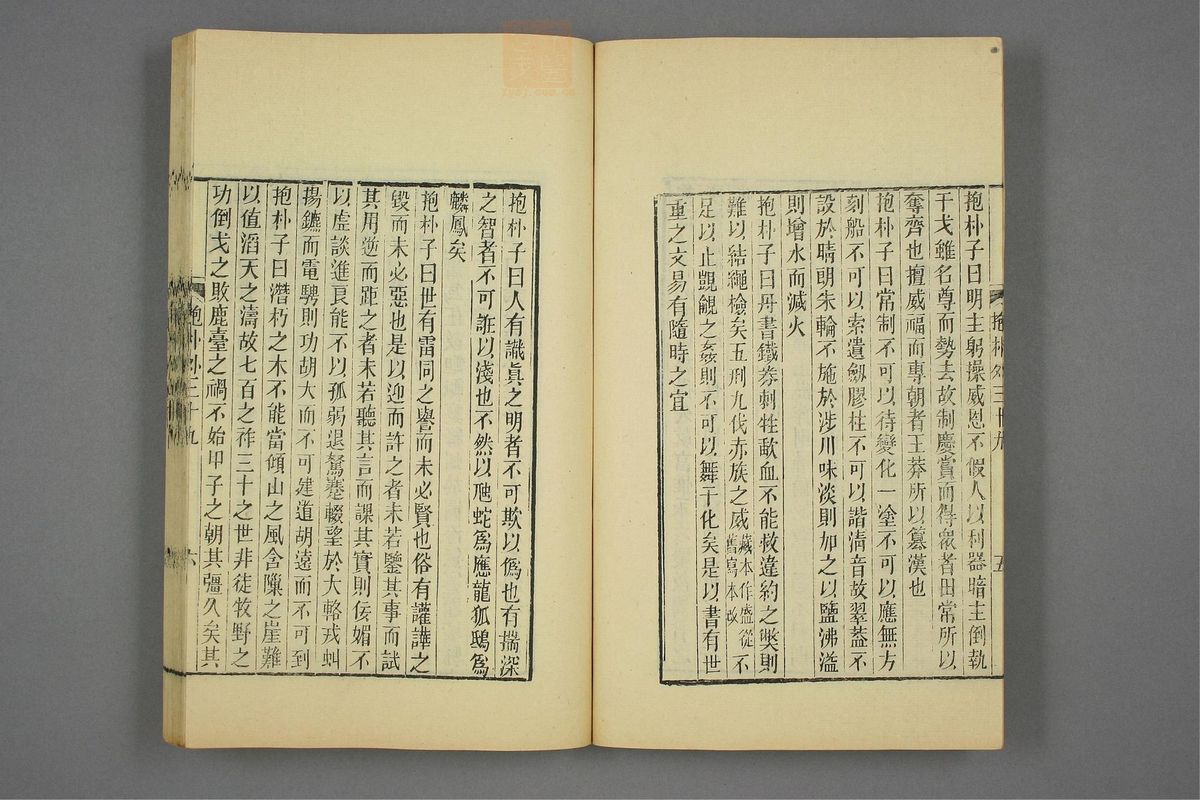 抱朴子曰明主躬操威恩不假人以利器暗主倒執
干戈雖名尊而勢去故制慶賞而得眾者田常所以
奪齊也擅威福而專朝者王莽所以篡漢也
抱朴子曰常制不可以待變化一塗不可以應無方
刻船不可以索遺劒膠柱不可以諧淸音故翠葢不
設於晴明朱輪不施於涉川味淡則加之以鹽沸溢
則增水而減火
抱朴子曰丹書鐵券刺牲歃血不能救違約之獘則
難以結繩檢矣五刑九伐赤族之威藏本作盛從舊寫本改不
足以止覬覦之姦則不可以舞干化矣是以書有世
重之文易有隨時之宜
抱朴外三十九
五
抱朴子曰人有識眞之明者不可欺以僞也有揣深
之智者不可誑以淺也不然以虺蛇爲應龍狐鴟爲
麟鳳矣
抱朴子曰世有雷同之譽而未必賢也俗有讙譁之
毀而未必惡也是以迎而許之者未若鑒其事而試
其用逆而距之者未若聽其言而課其實則佞媚不
以虛談進良能不以孤弱退駑蹇輟望於大輅戎虯
揚鑣而電騁則功胡大而不可建道胡遠而不可到
抱朴子曰潛朽之木不能當傾山之風含隟之崖難
以值滔天之濤故七百之祚三十之世非徒牧野之
功倒戈之敗鹿臺之禍不始甲子之朝其彊久矣其
抱朴外三十九
六